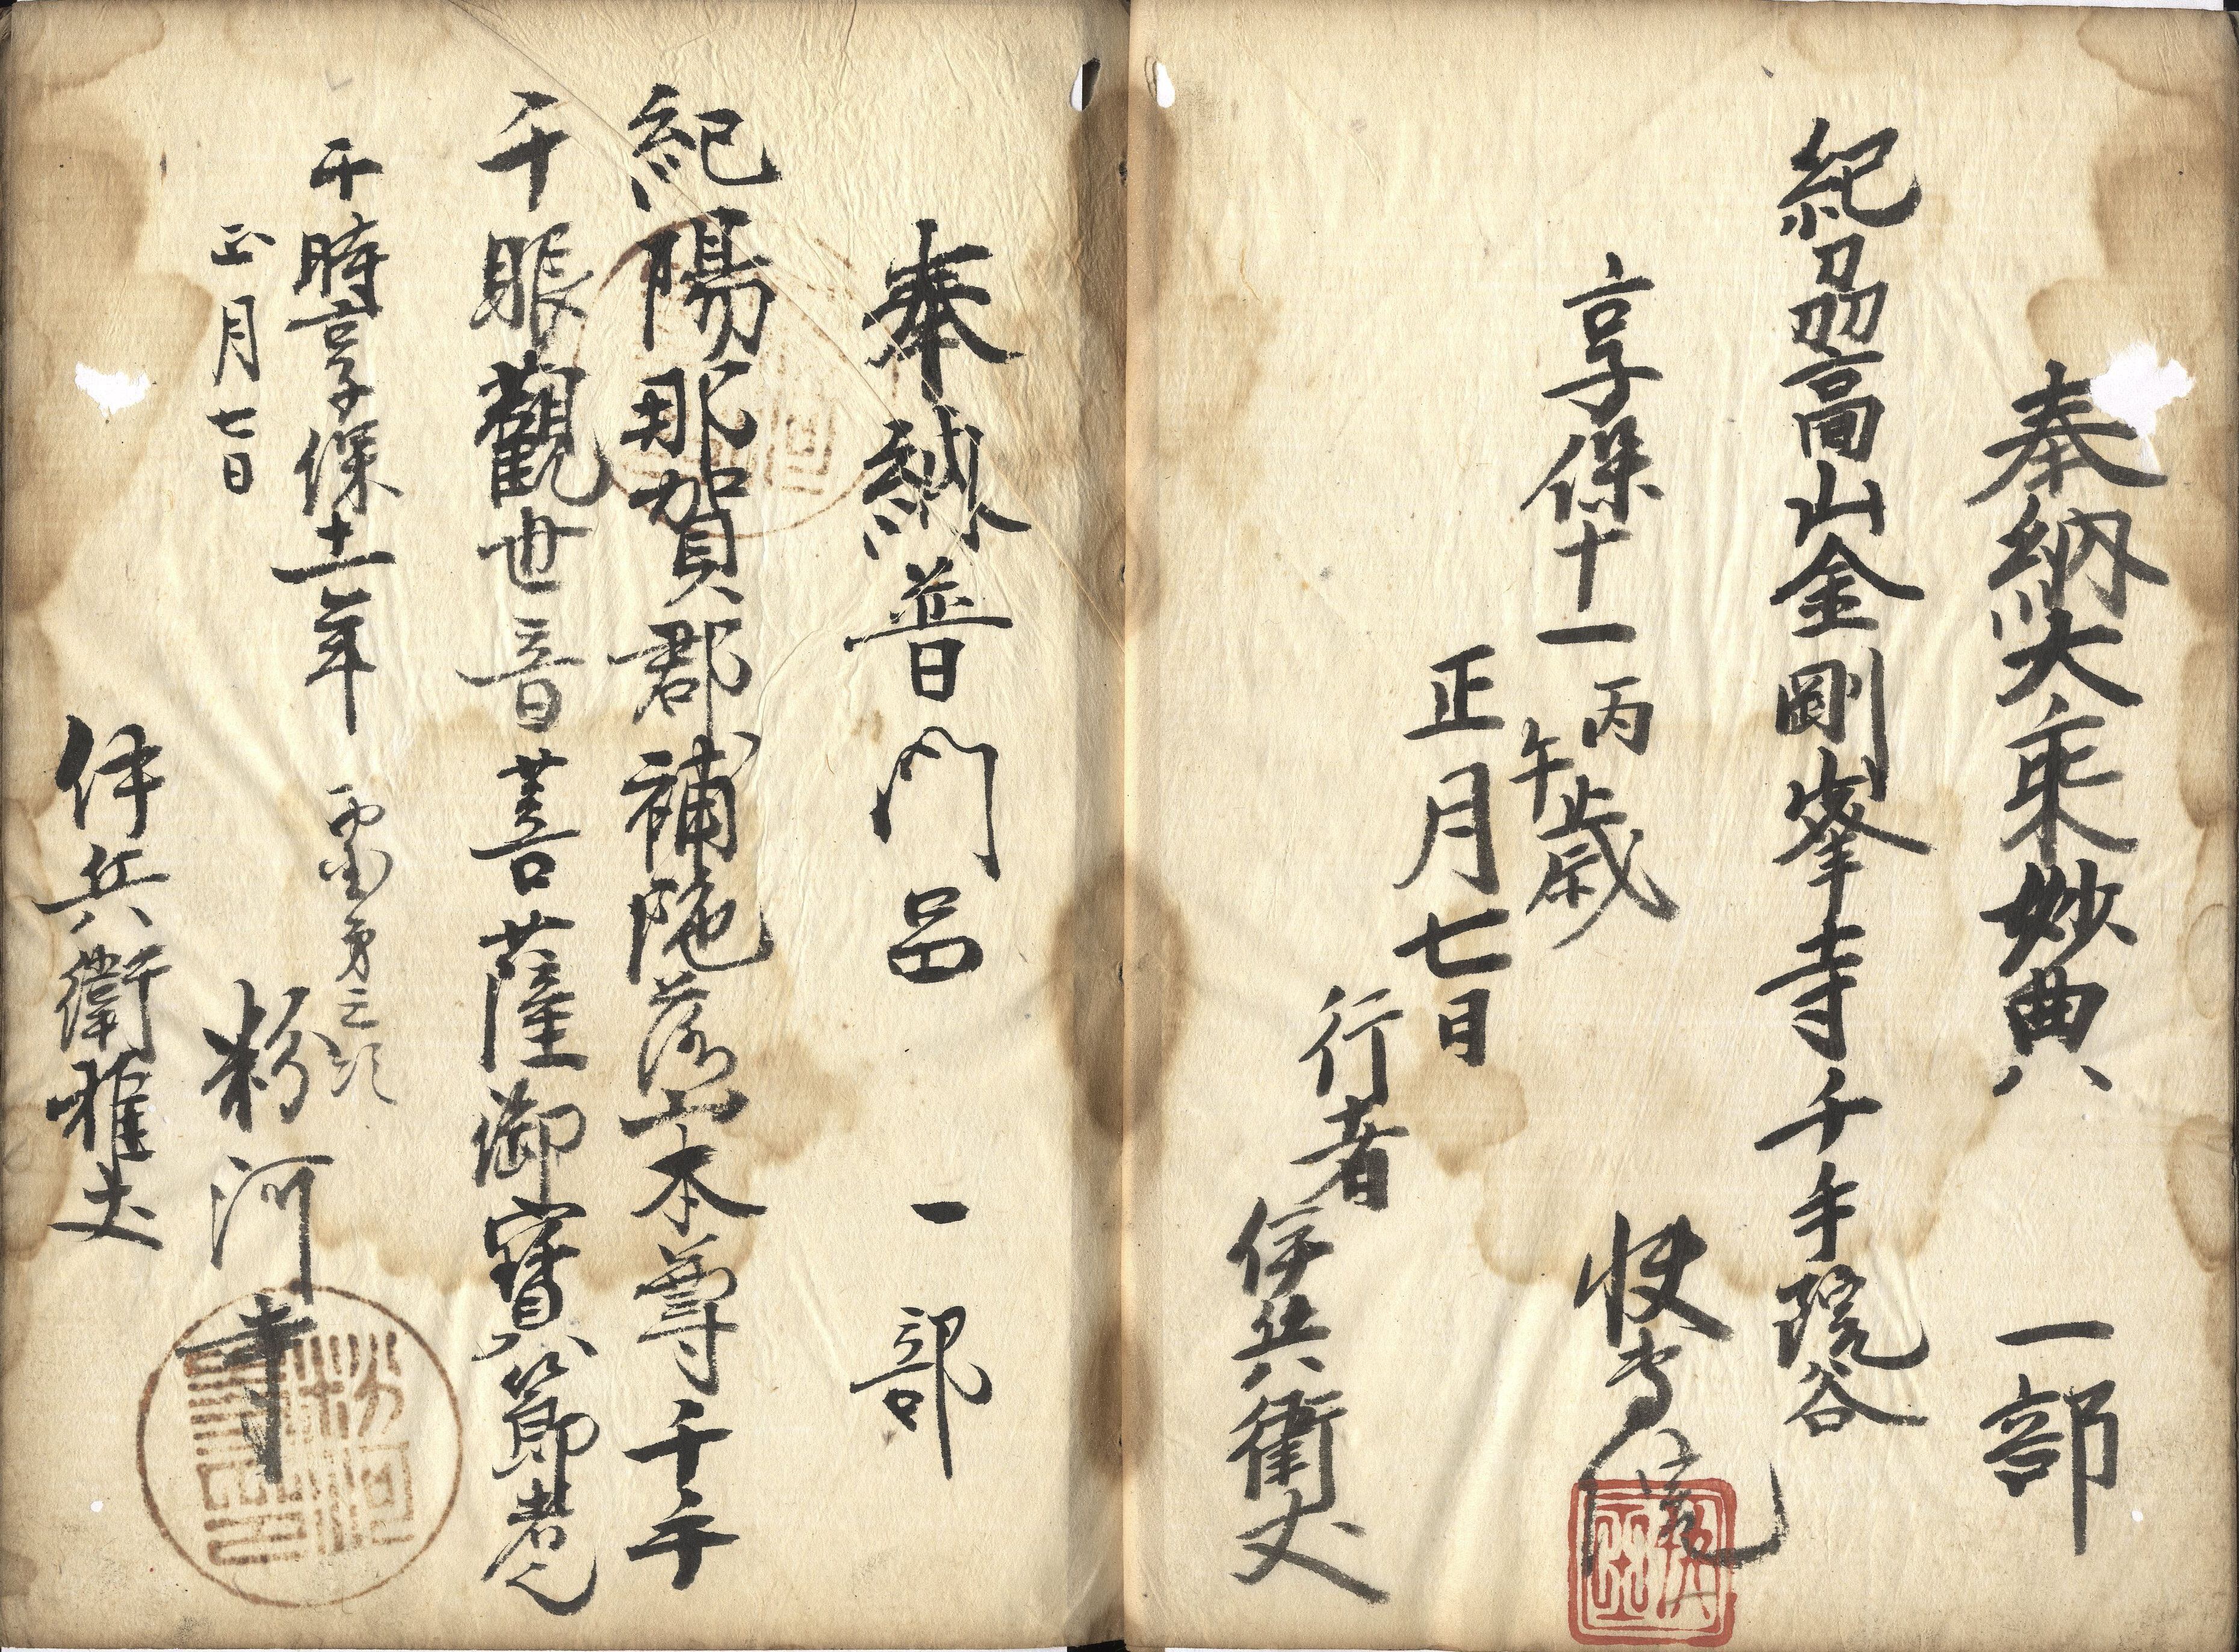 奉納大乘妙典　一部
紀刕高山金剛峯寺千手院谷
享保十一丙午歳
正月七日
行者
伊兵衛丈
奉納普門品　一部
紀陽那賀郡補陀落山本尊千手
千眼觀世音菩薩御寳前者也
于時享保十一年
正月七日
西國第三
粉河寺
伊兵衛雅丈